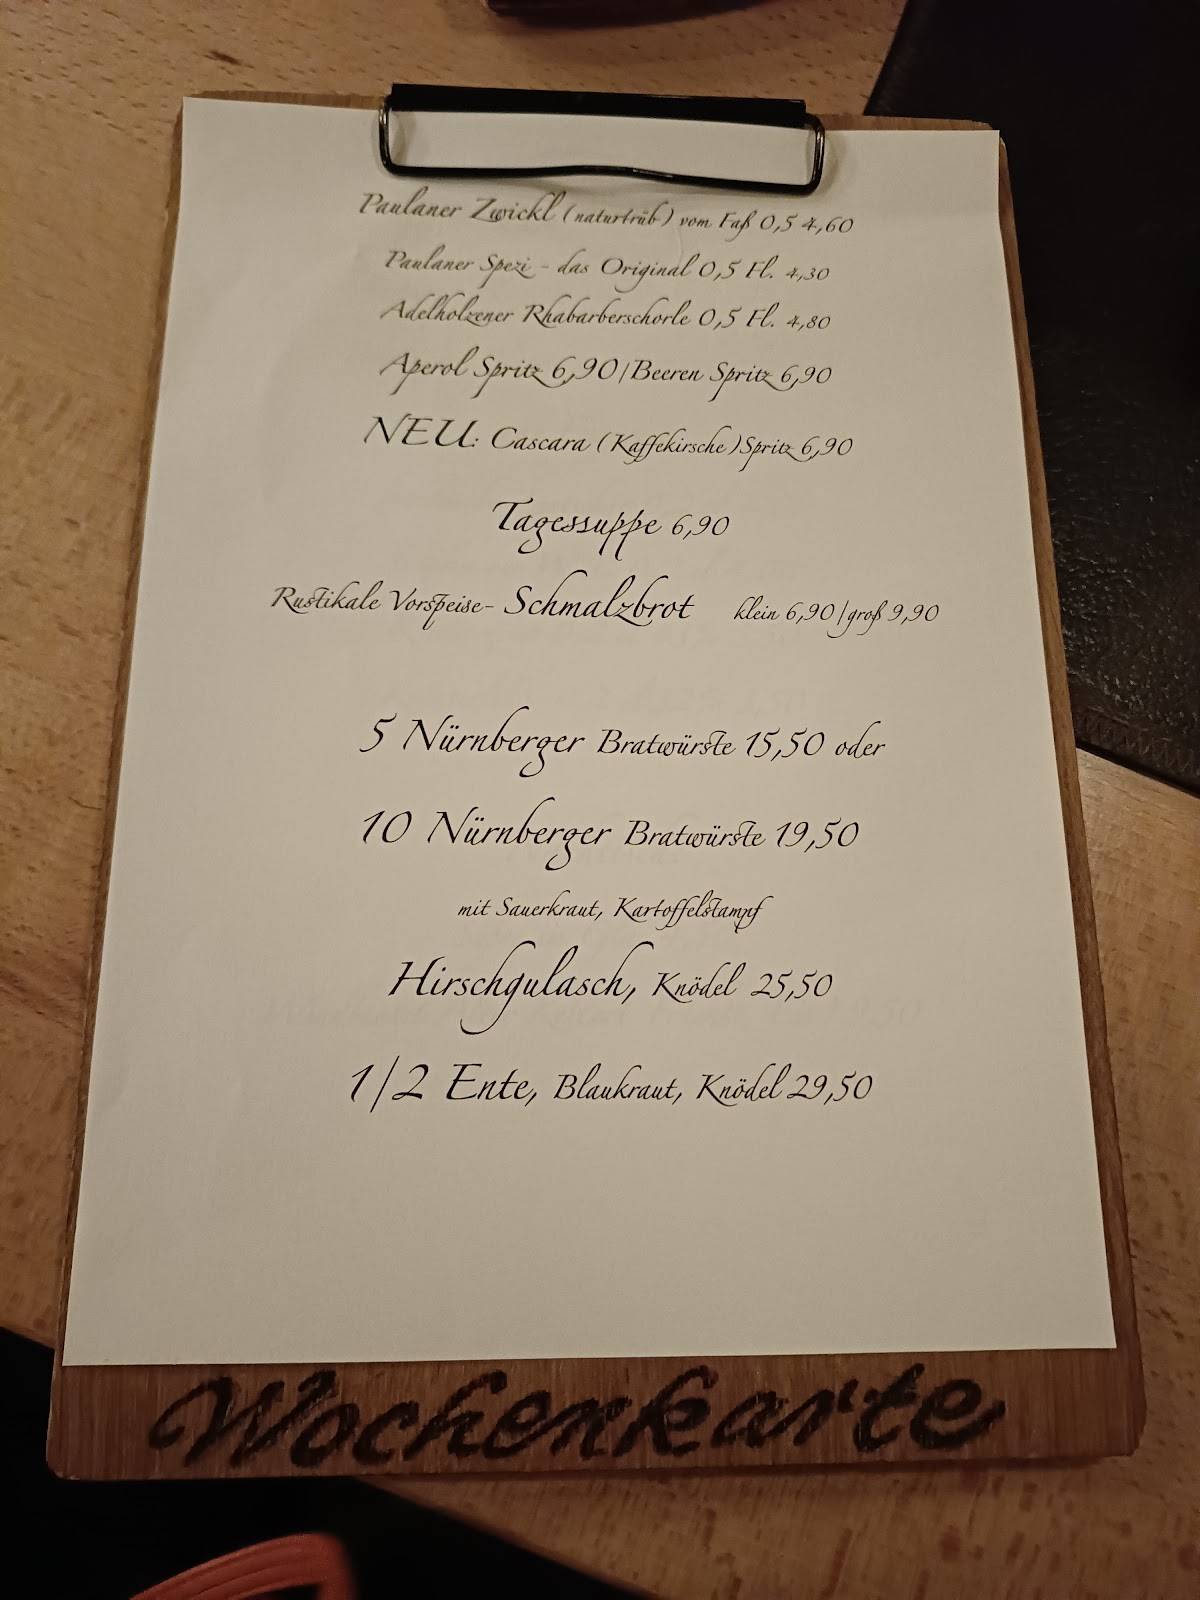 Paulaner Zwickl (naturtrüb) vom Faß 0,5 4,60
Paulaner Spezi - das Original 0,5 Fl. 4,30
Adelholzener Rhabarberschorle 0,5 Fl. 4,80
Aperol Spritz 6,90/Beeren Spritz 6,90
NEU: Cascara (Kaffekirsche)Spritz 6,90
Tagessuppe 6,90
Rustikale Vorspeise- Schmalzbrot klein 6,90/groß 9,90
5 Nürnberger Bratwürste 15,50 oder
10 Nürnberger Bratwürste 19,50
mit Sauerkraut, Kartoffelstampf
Hirschgulasch, Knödel 25,50
1/2 Ente, Blaukraut, Knödel 29,50
Wochenkarte